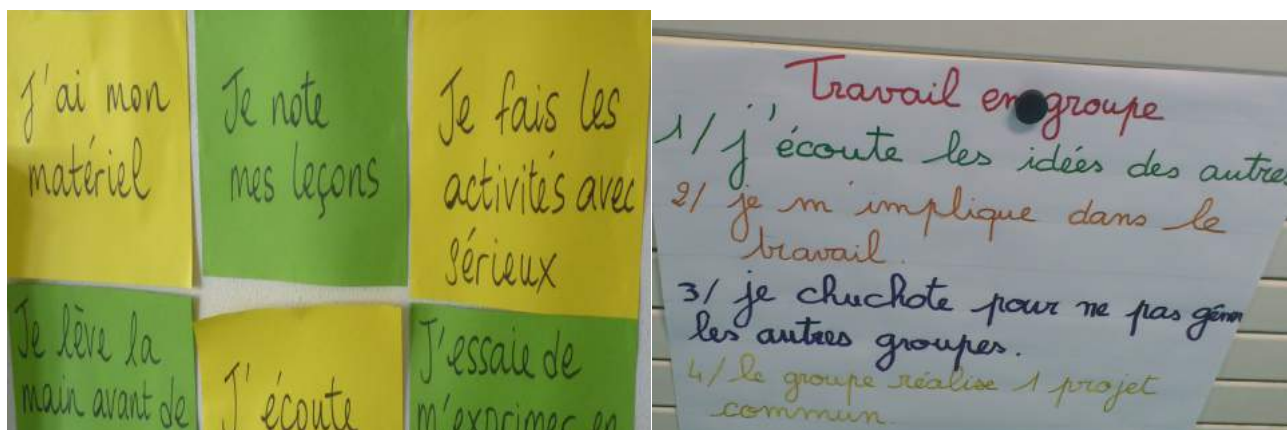 J'ai mon
matériel
Je note
mes leçons
Je fais les
activités avec
sérieux
Je lève la
main avant de
J'écoute
J'essaie de
m'exprimer en
Travail en groupe
1/ j'écoute les idées des autres
2/ je m'implique dans le
travail.
3/ je chuchote pour ne pas gêner
les autres groupes.
4/ le groupe réalise 1 projet
commun.